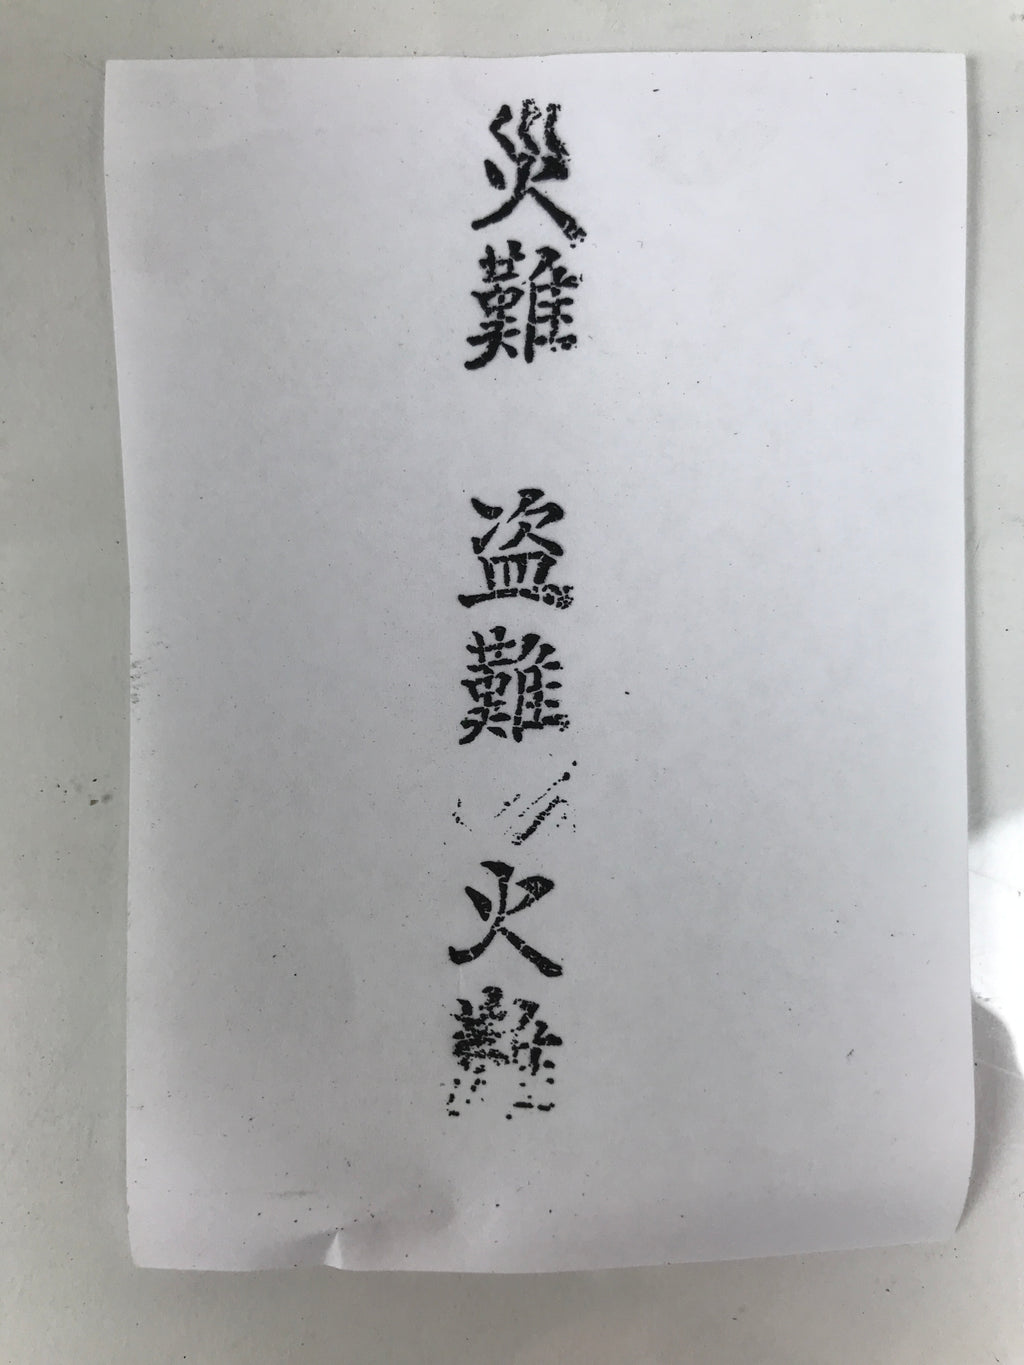 災難 盗難 火難